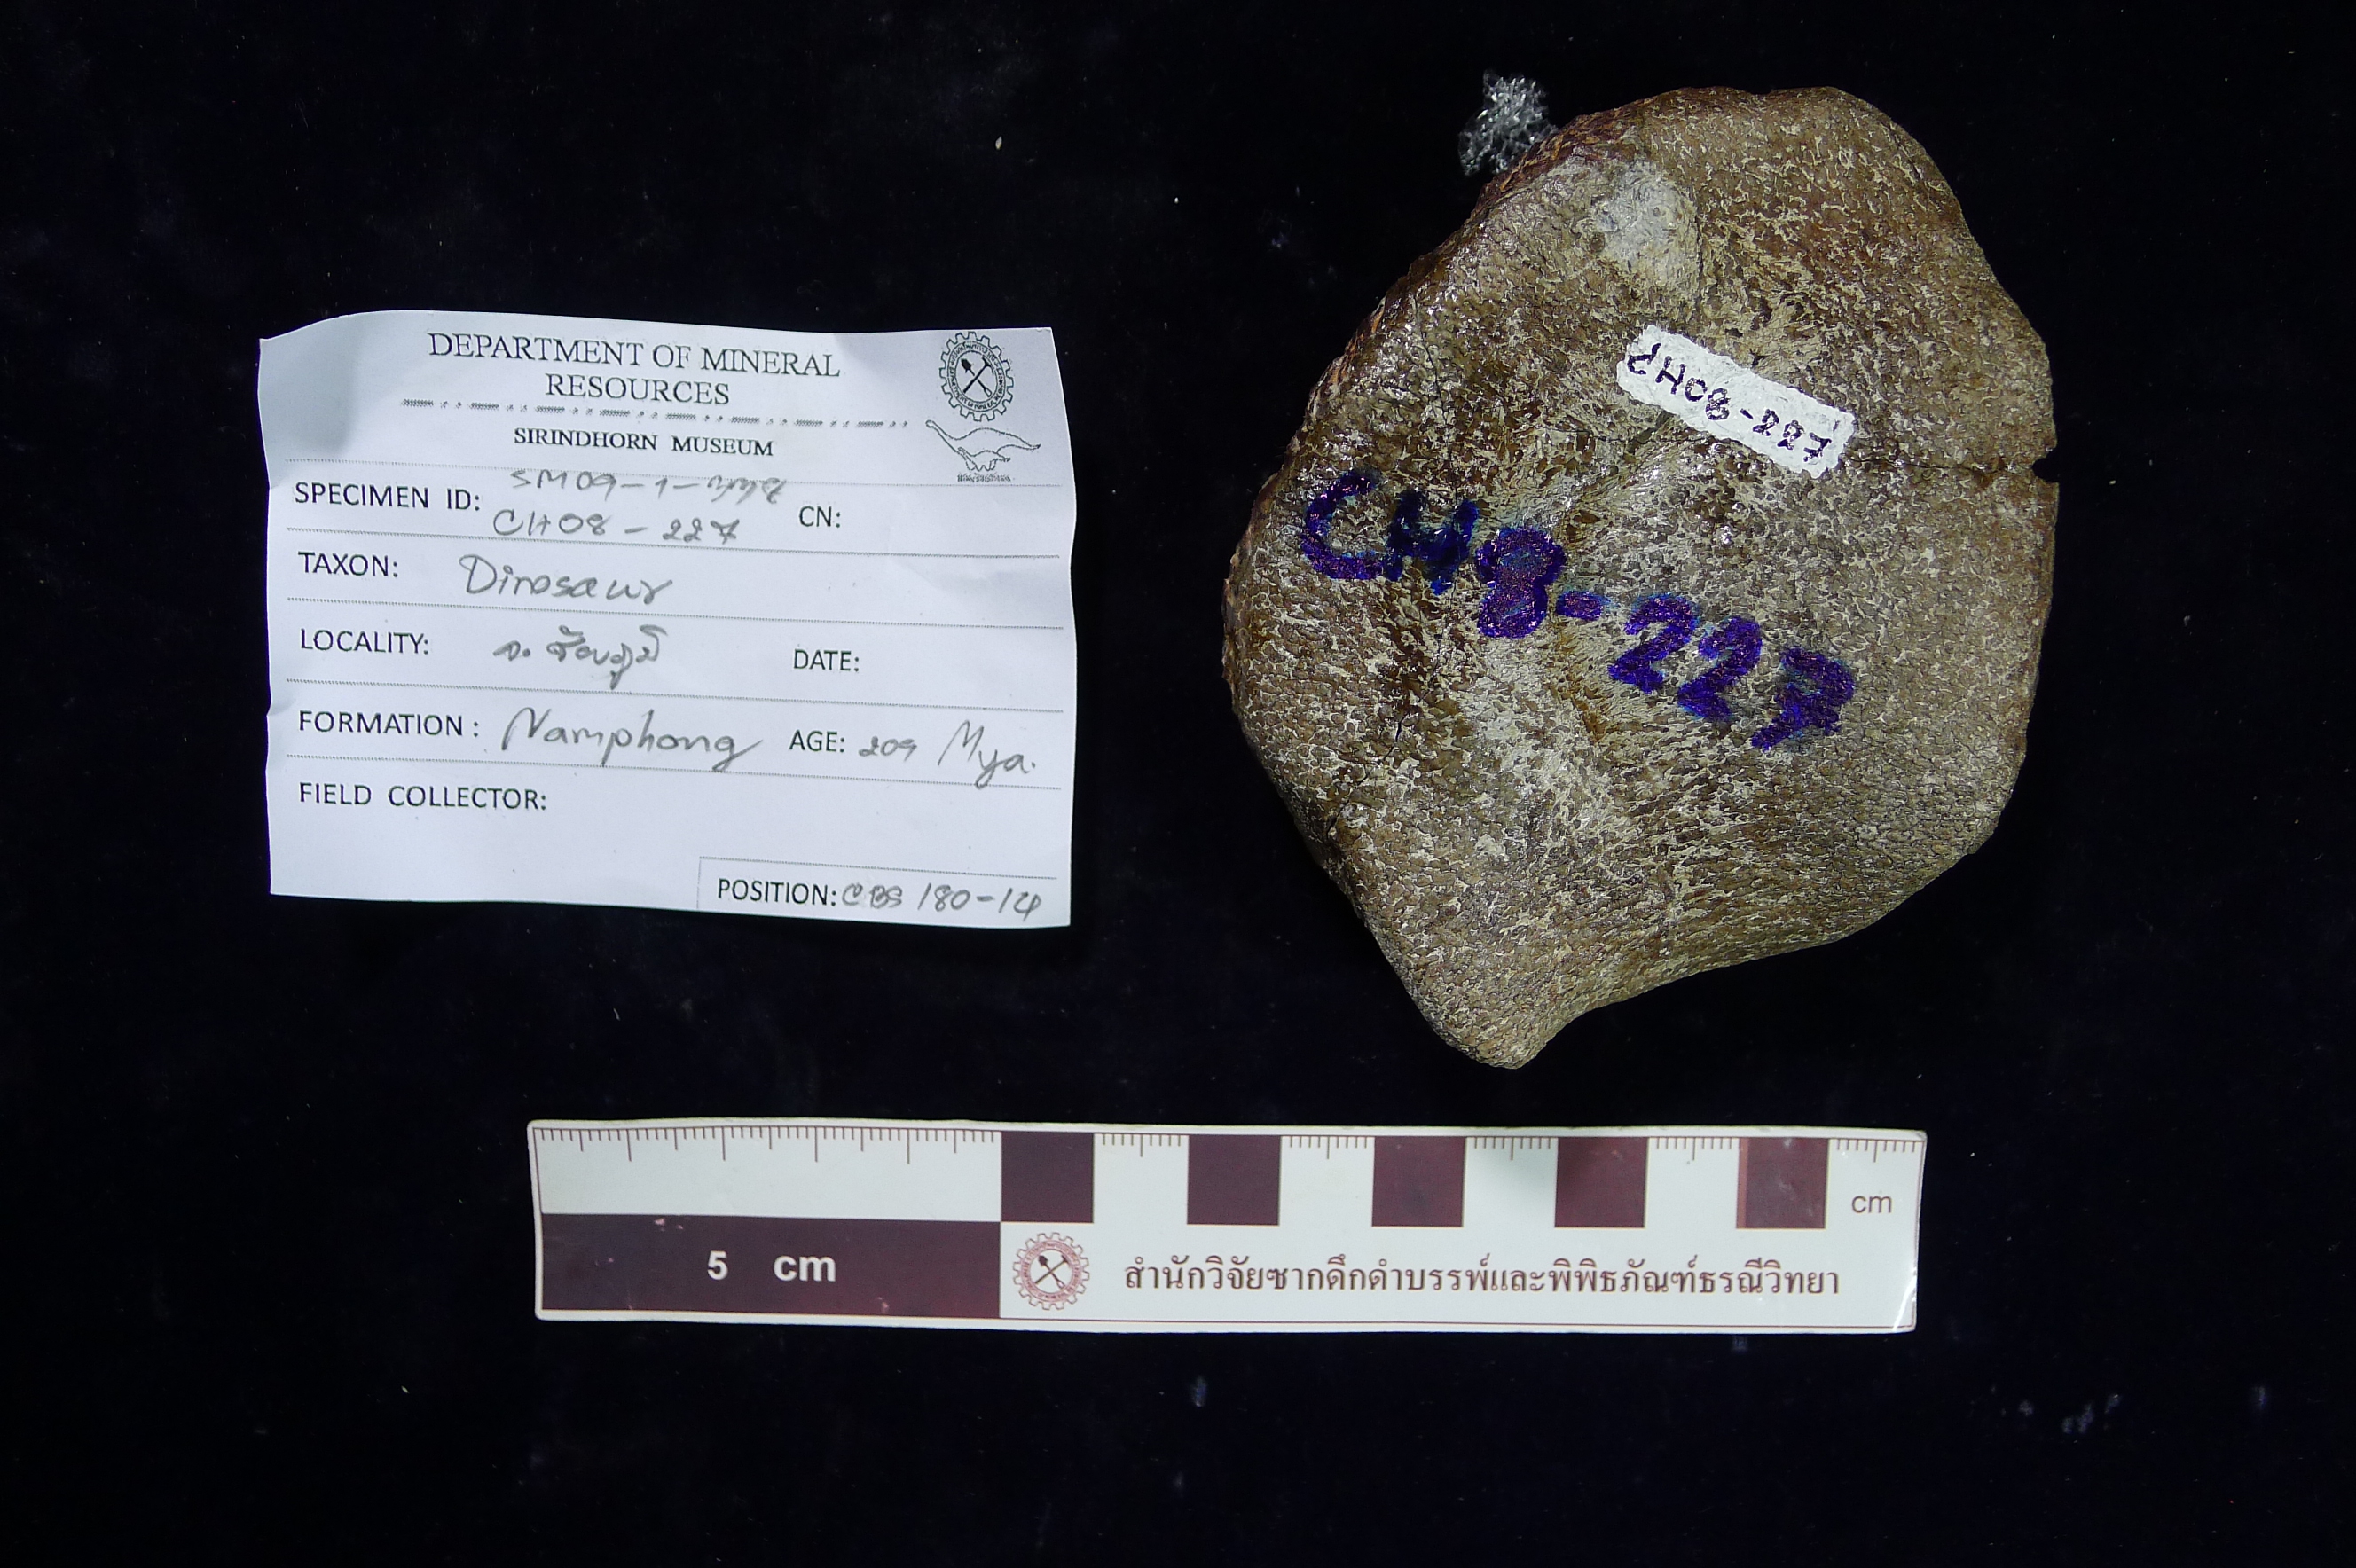 DEPARTMENT OF MINERAL
RESOURCES
SIRINDHORN MUSEUM
SPECIMEN ID: SM09-1-
CH08-227 CN:
TAXON: Dinosaur
LOCALITY: จ. ชัยภูมิ DATE:
FORMATION: Namphong AGE: 209 Mya.
FIELD COLLECTOR:
POSITION: CBS 180-14
CH08-227
CH8-227
5 cm
cm
สำนักวิจัยซากดึกดำบรรพ์และพิพิธภัณฑ์ธรณีวิทยา